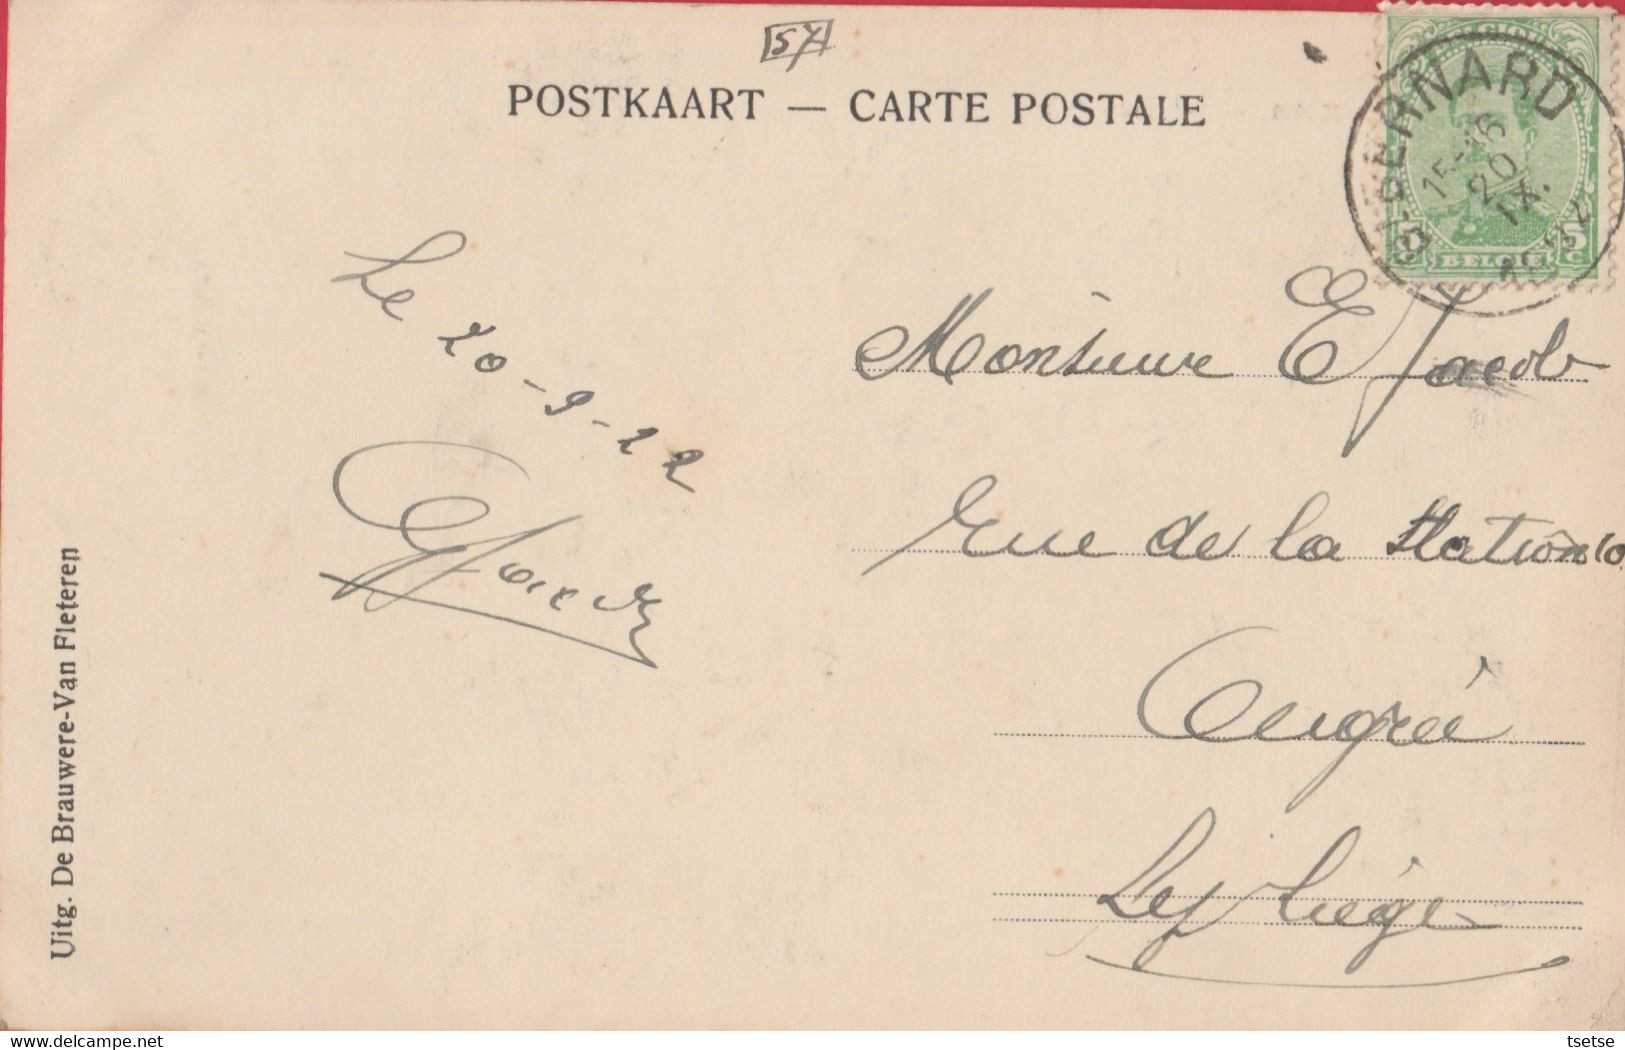 57
POSTKAART — CARTE POSTALE
BERNARD
15-16
20
IX.
5 C
BELGIE
Le 20-9-22
Monsieur E Jacob
Rue de la Station 10
Ougrée
Lez Liége
Uitg. De Brauwere-Van Fleteren
www.delcampe.net
tsetse